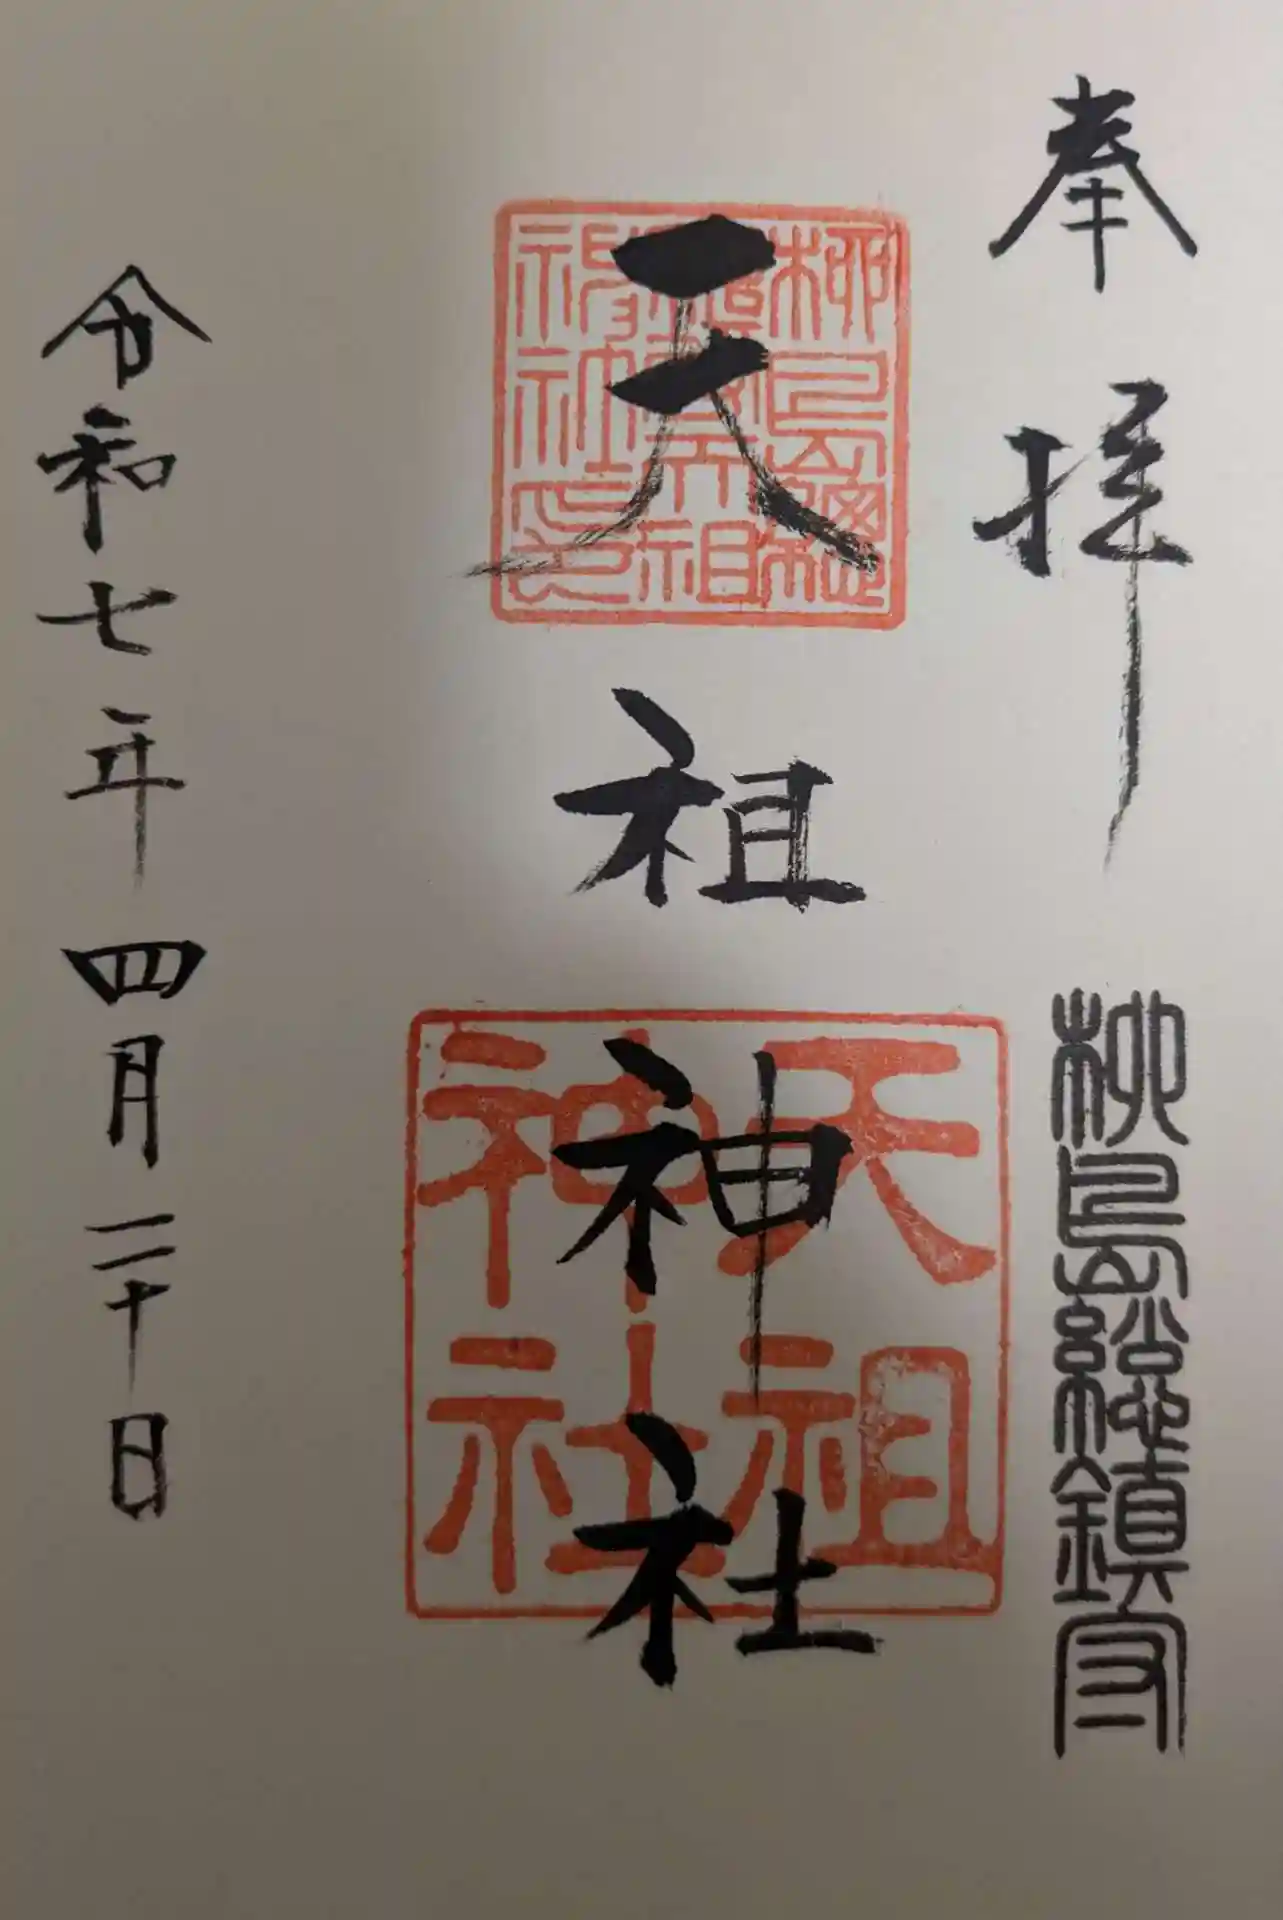 奉拝
柳島総鎮守
天祖神社
天祖神社
令和七年四月二十日